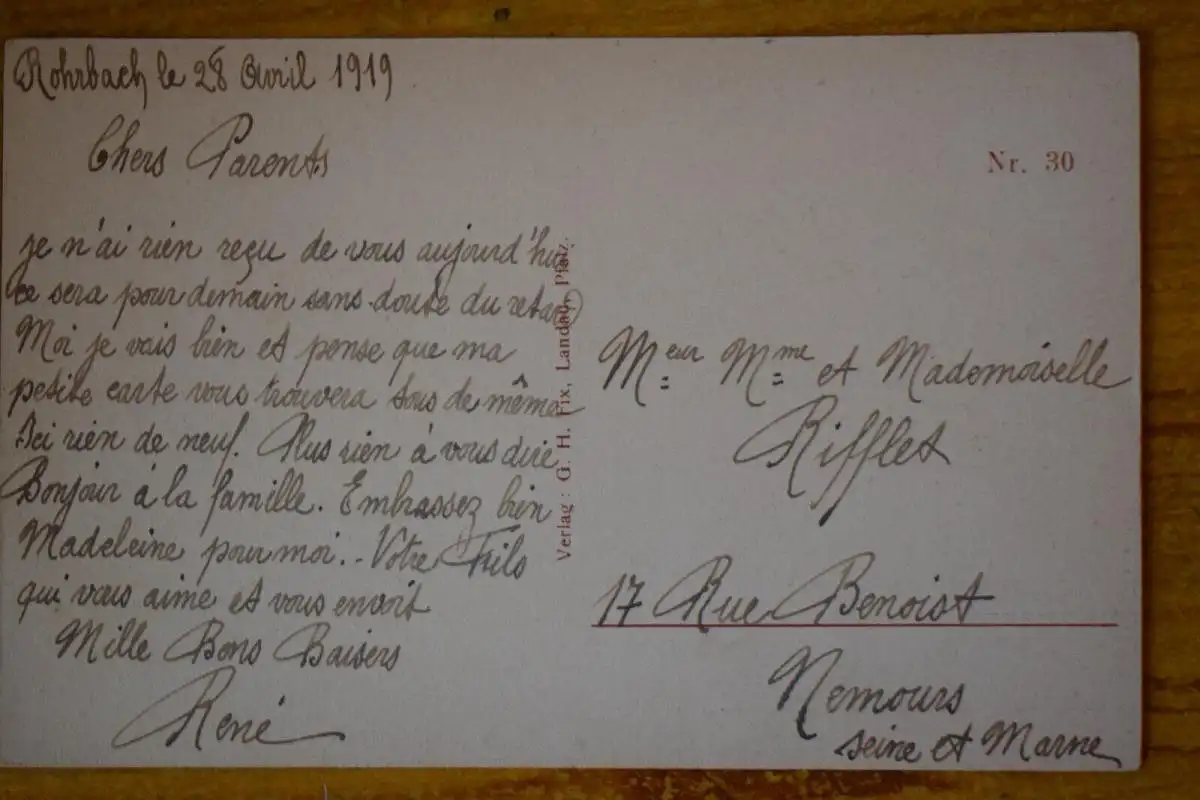 Rohrbach le 28 Avril 1919
Chers Parents
je n'ai rien reçu de vous aujourd'hui
ce sera pour demain sans doute du retard
Moi je vais bien et pense que ma
petite carte vous trouvera tous de même
Ici rien de neuf. Plus rien à vous dire
Bonjour à la famille. Embrassez bien
Madeleine pour moi.. Votre Fils
qui vous aime et vous envoit
Mille Bons Baisers
René
Verlag: G. H. Fix, Landau, Pfalz.
Nr. 30
Meur Mme et Mademoiselle
Rifflet
17 Rue Benoist
Nemours
seine et Marne